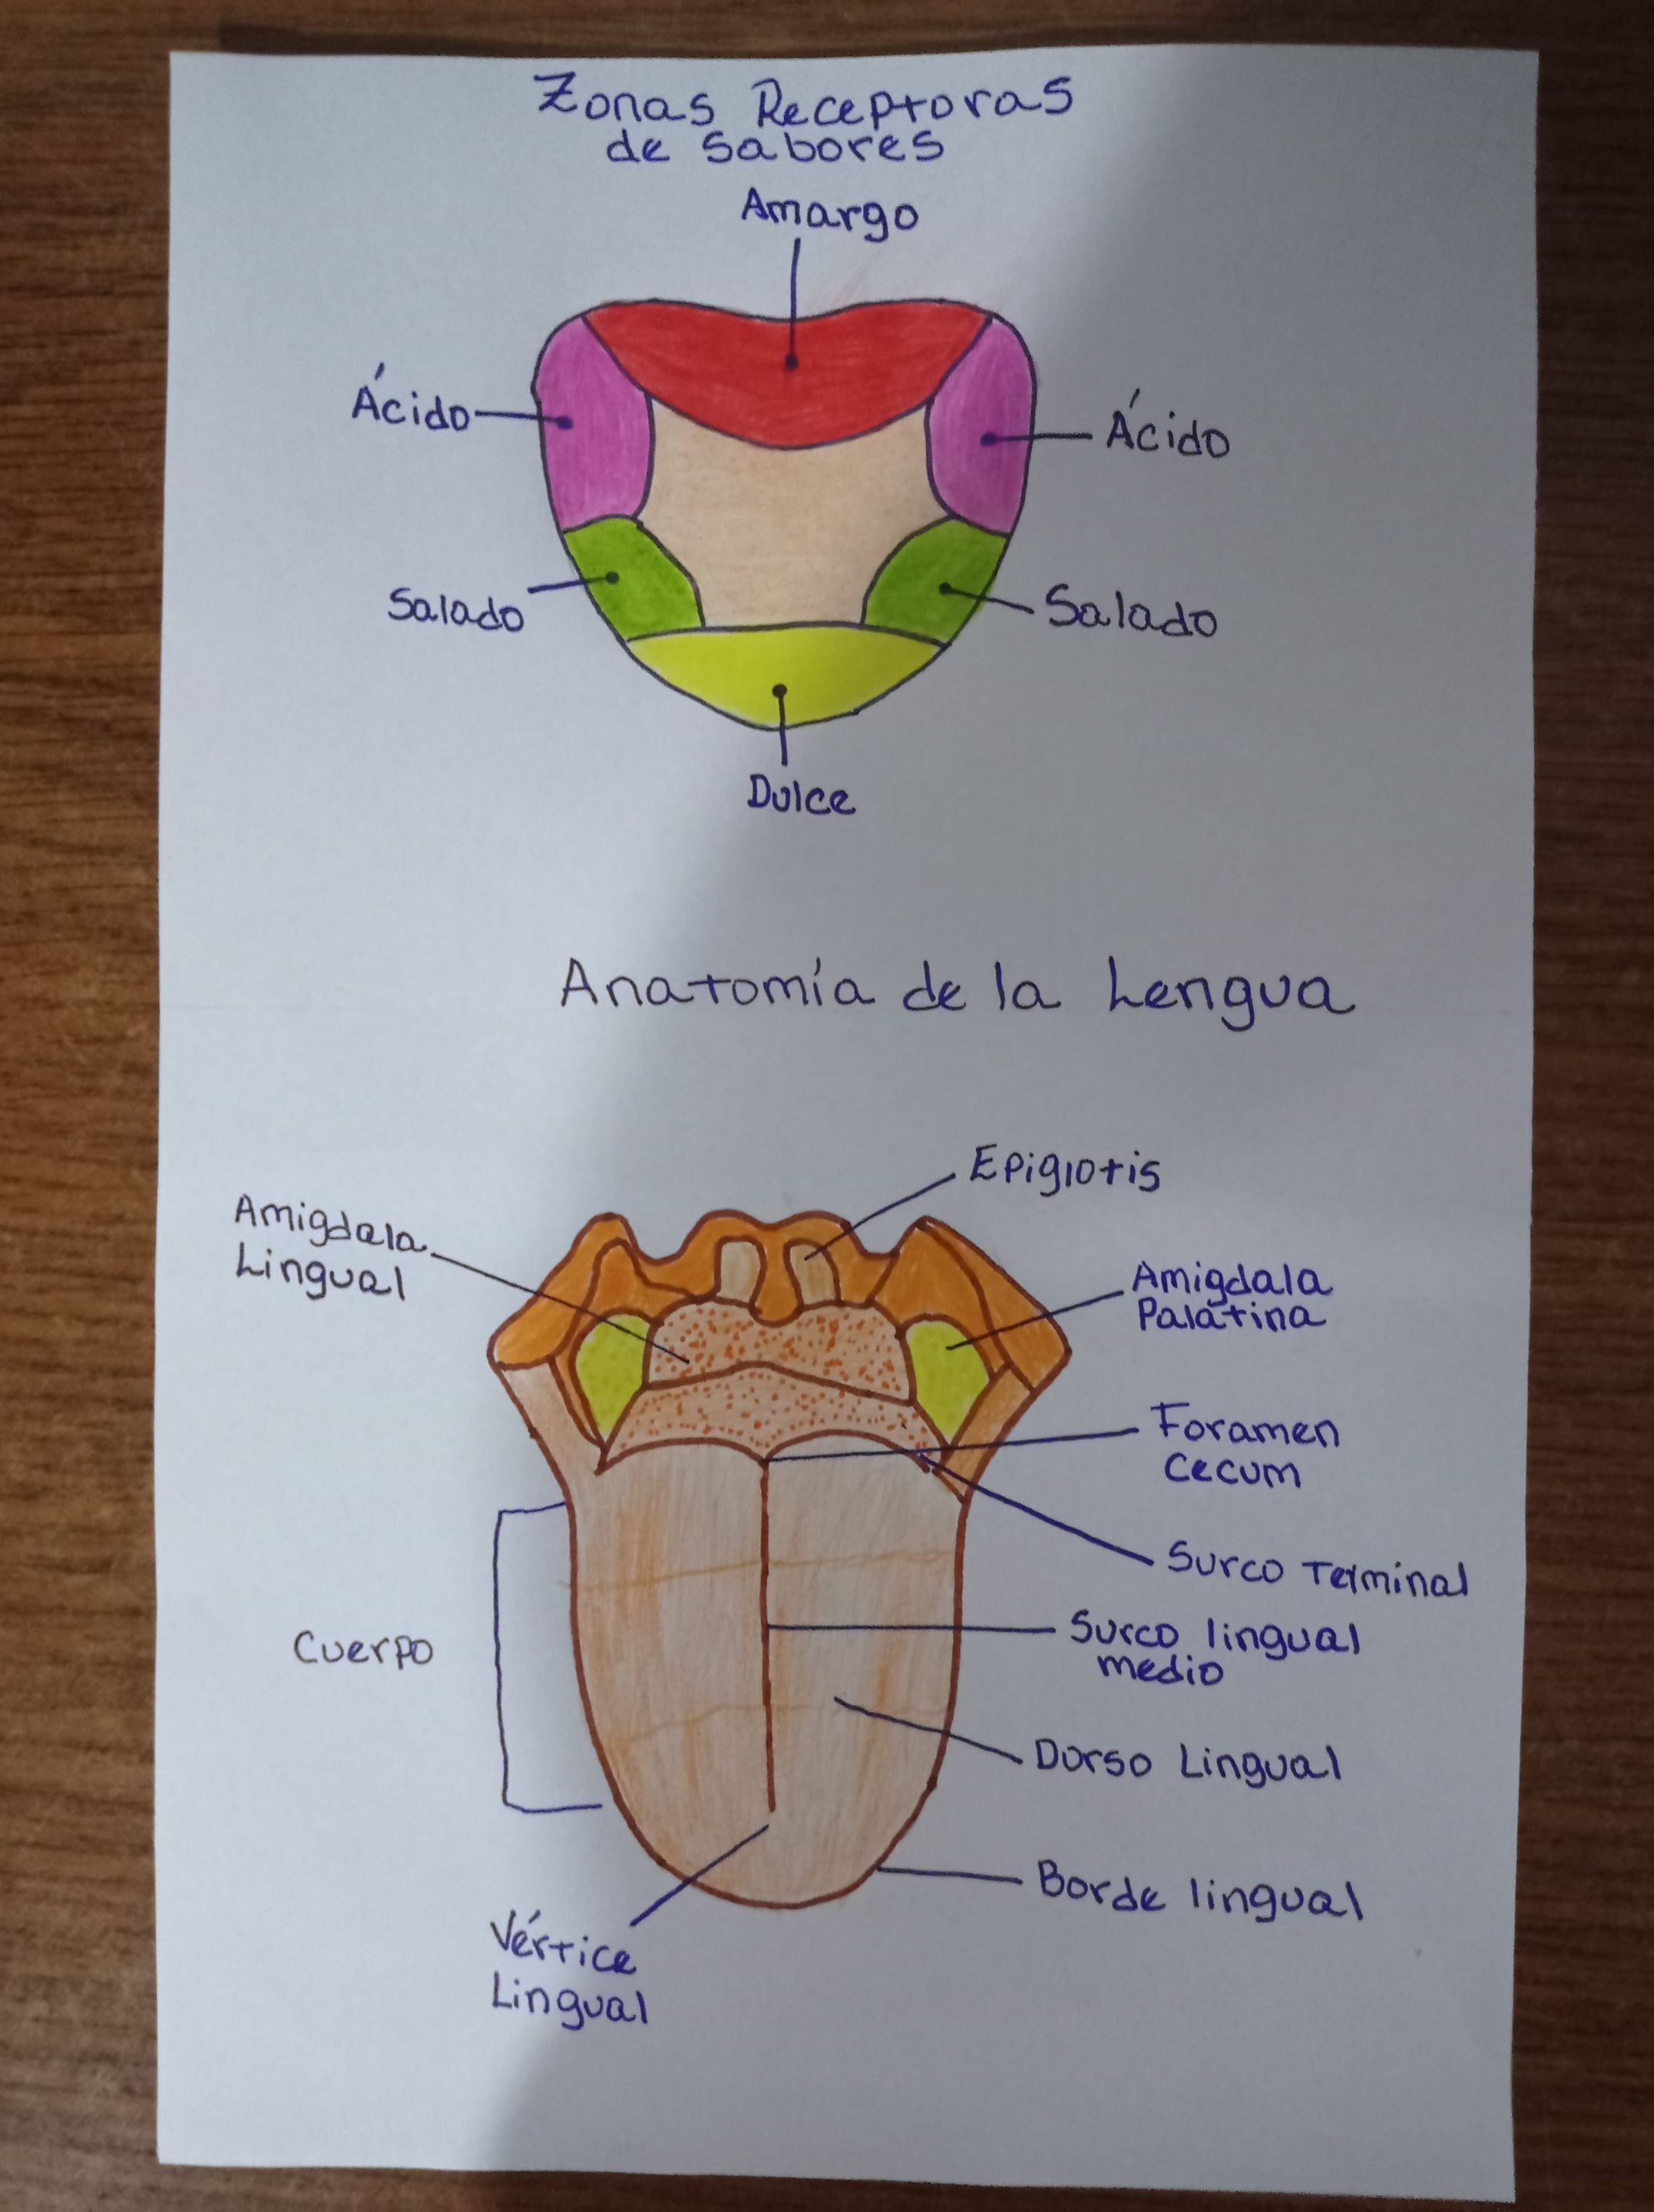 Zonas Receptoras
de Sabores
Amargo
Ácido
Ácido
Salado
Salado
Dulce
Anatomía de la Lengua
Epiglotis
Amigdala
Lingual
Amigdala
Palatina
Foramen
Cecum
Surco Terminal
Surco lingual
medio
Cuerpo
Dorso Lingual
Borde lingual
Vértice
Lingual